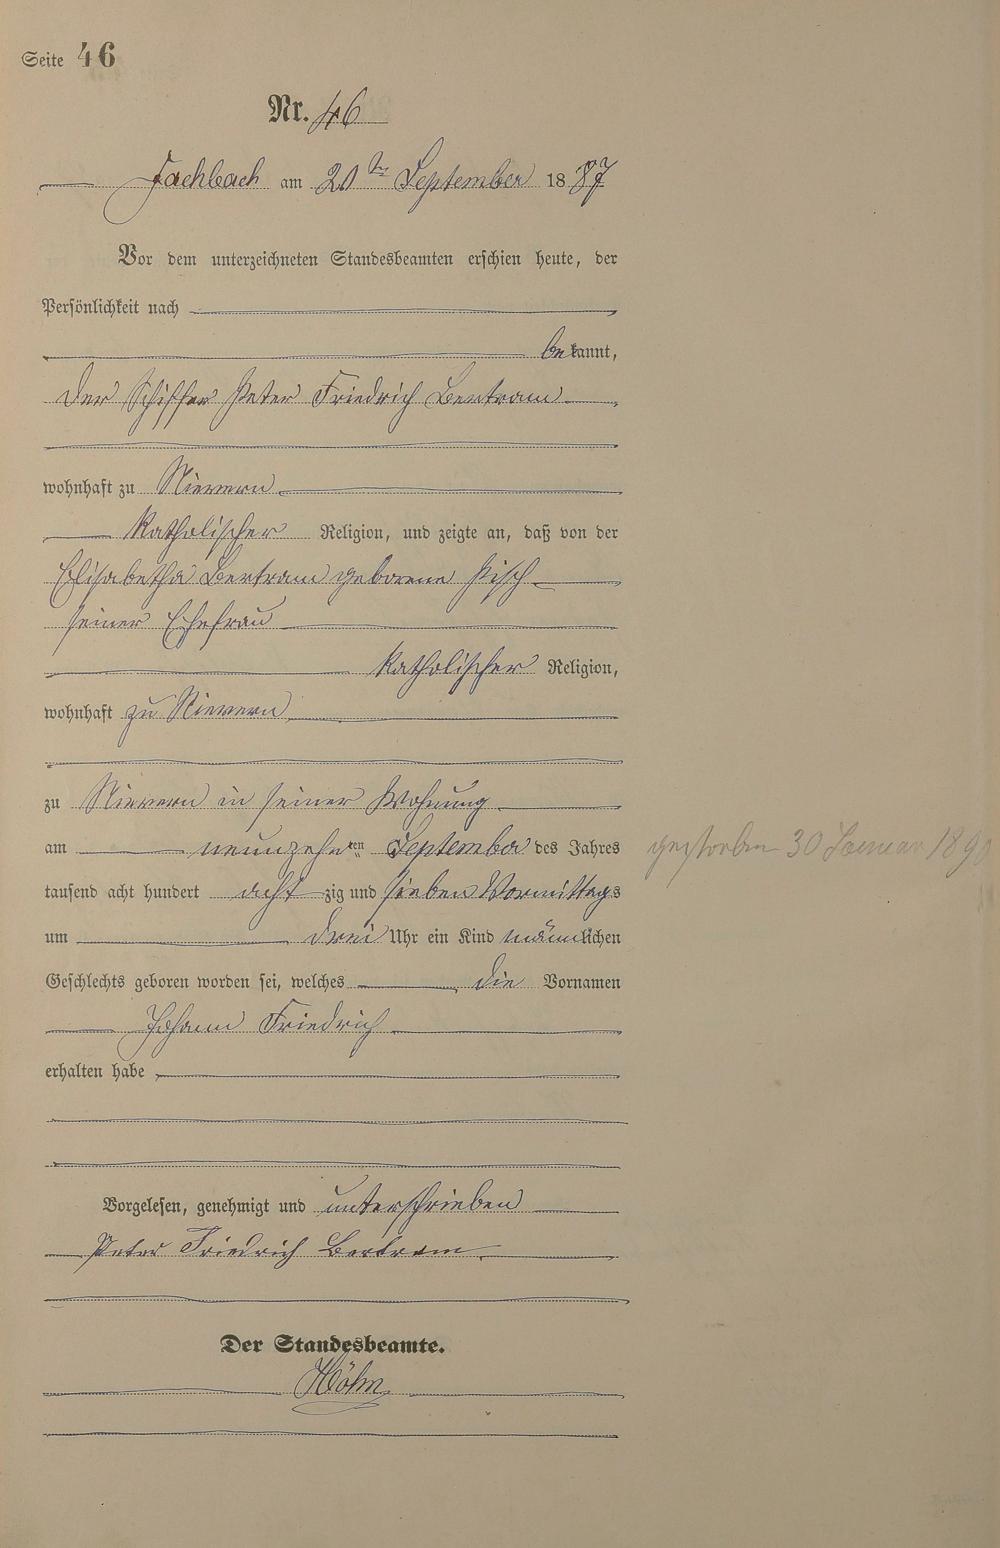 Seite 46
Nr. 46
Fachbach am 20ten September 1887
Vor dem unterzeichneten Standesbeamten erschien heute, der
Persönlichkeit nach
bekannt,
der Schiffer Peter Friedrich Bertram
wohnhaft zu Nievern
katholischer Religion, und zeigte an, daß von der
Elisabetha Bertram geborene Pisch
seiner Ehefrau
katholischer Religion,
wohnhaft zu Nievern
zu Nievern in seiner Wohnung
am neunzehnten September des Jahres
tausend acht hundert achtzig und sieben Vormittags
um drei Uhr ein Kind männlichen
Geschlechts geboren worden sei, welches die Vornamen
Johann Friedrich
erhalten habe
Vorgelesen, genehmigt und unterschrieben
Peter Friedrich Bertram
Der Standesbeamte.
gestorben 30 Januar